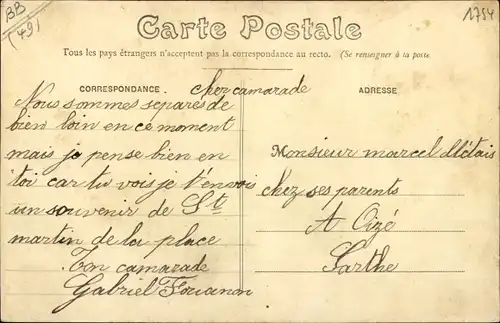 BB
(49)
1754
Carte Postale
Tous les pays étrangers n'acceptent pas la correspondance au recto. (Se renseigner à la poste
CORRESPONDANCE
ADRESSE
cher camarade
Nous sommes separés de
bien loin en ce moment
mais je pense bien en
toi car tu vois je t'envois
un souvenir de St
martin de la place
Ton camarade
Gabriel
Monsieur marcel Métais
chez ses parents
A Oizé
Sarthe